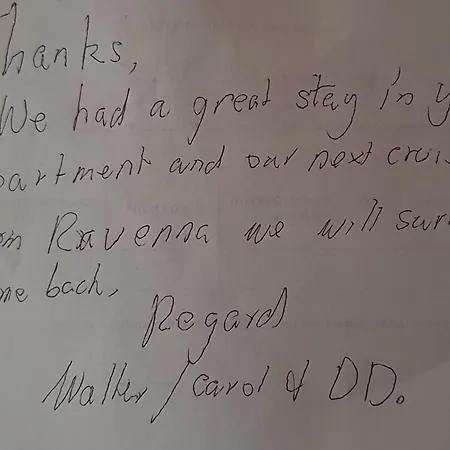 Thanks,
We had a great stay in y
partment and our next cruis
om Ravenna we will sur
me back,
Regard
Walter / Carol & DD.